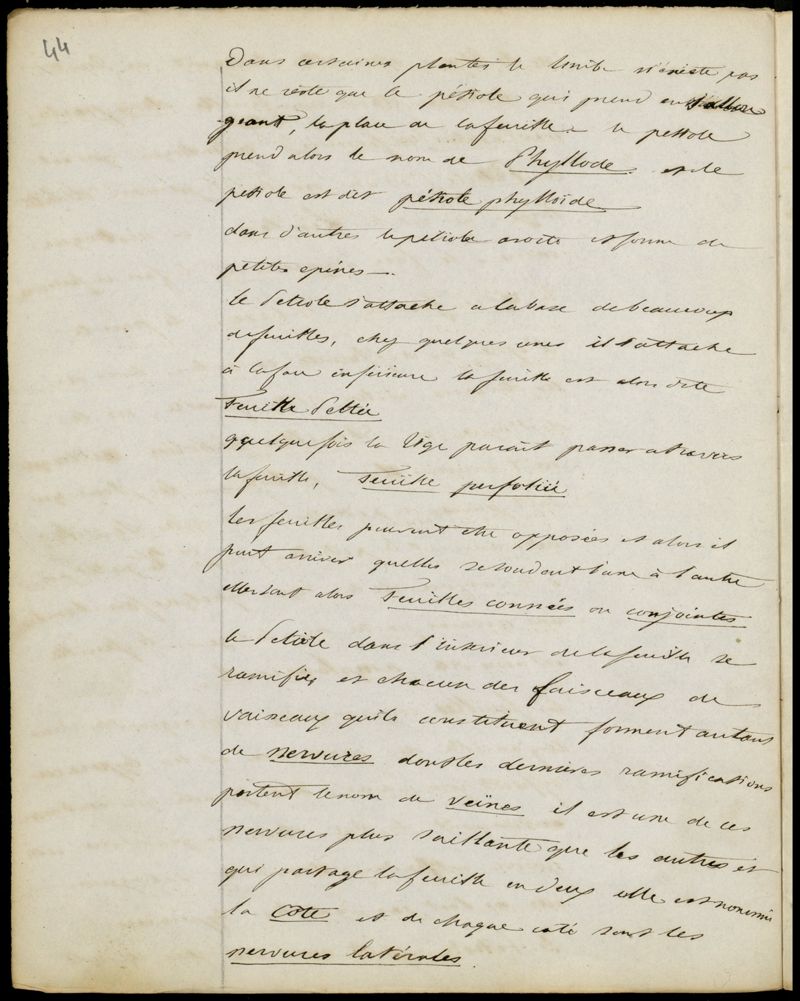 44
Dans certaines plantes le limbe n'existe pas
il ne reste que le pétiole qui prend en s'allon
geant, la place de la feuille - le petiole
prend alors le nom de Phyllode. et le
petiole est dit pétiole phylloïde
dans d'autres le pétiole avorte et forme de
petites epines —.
Le Petiole s'attache a la base de beaucoup
de feuilles, chez quelques unes il s'attache
à la face inférieure la feuille est alors dite
Feuille Peltée
quelquefois la tige parait passer a travers
la feuille, Feuille perfoliée
Les feuilles peuvent etre opposées et alors il
peut arriver quelles se soudent l'une à l'autre
elles sont alors Feuilles connées ou conjointes
le Petiole dans l'interieur de la feuille se
ramifie et chacun des faisceaux de
vaisseaux quils constituent forment autant
de nervures dont les dernieres ramifications
portent le nom de veines il est une de ces
nervures plus saillante que les autres et
qui partage la feuille en deux elle est nommée
la côte et de chaque coté sont les
nervures latérales.